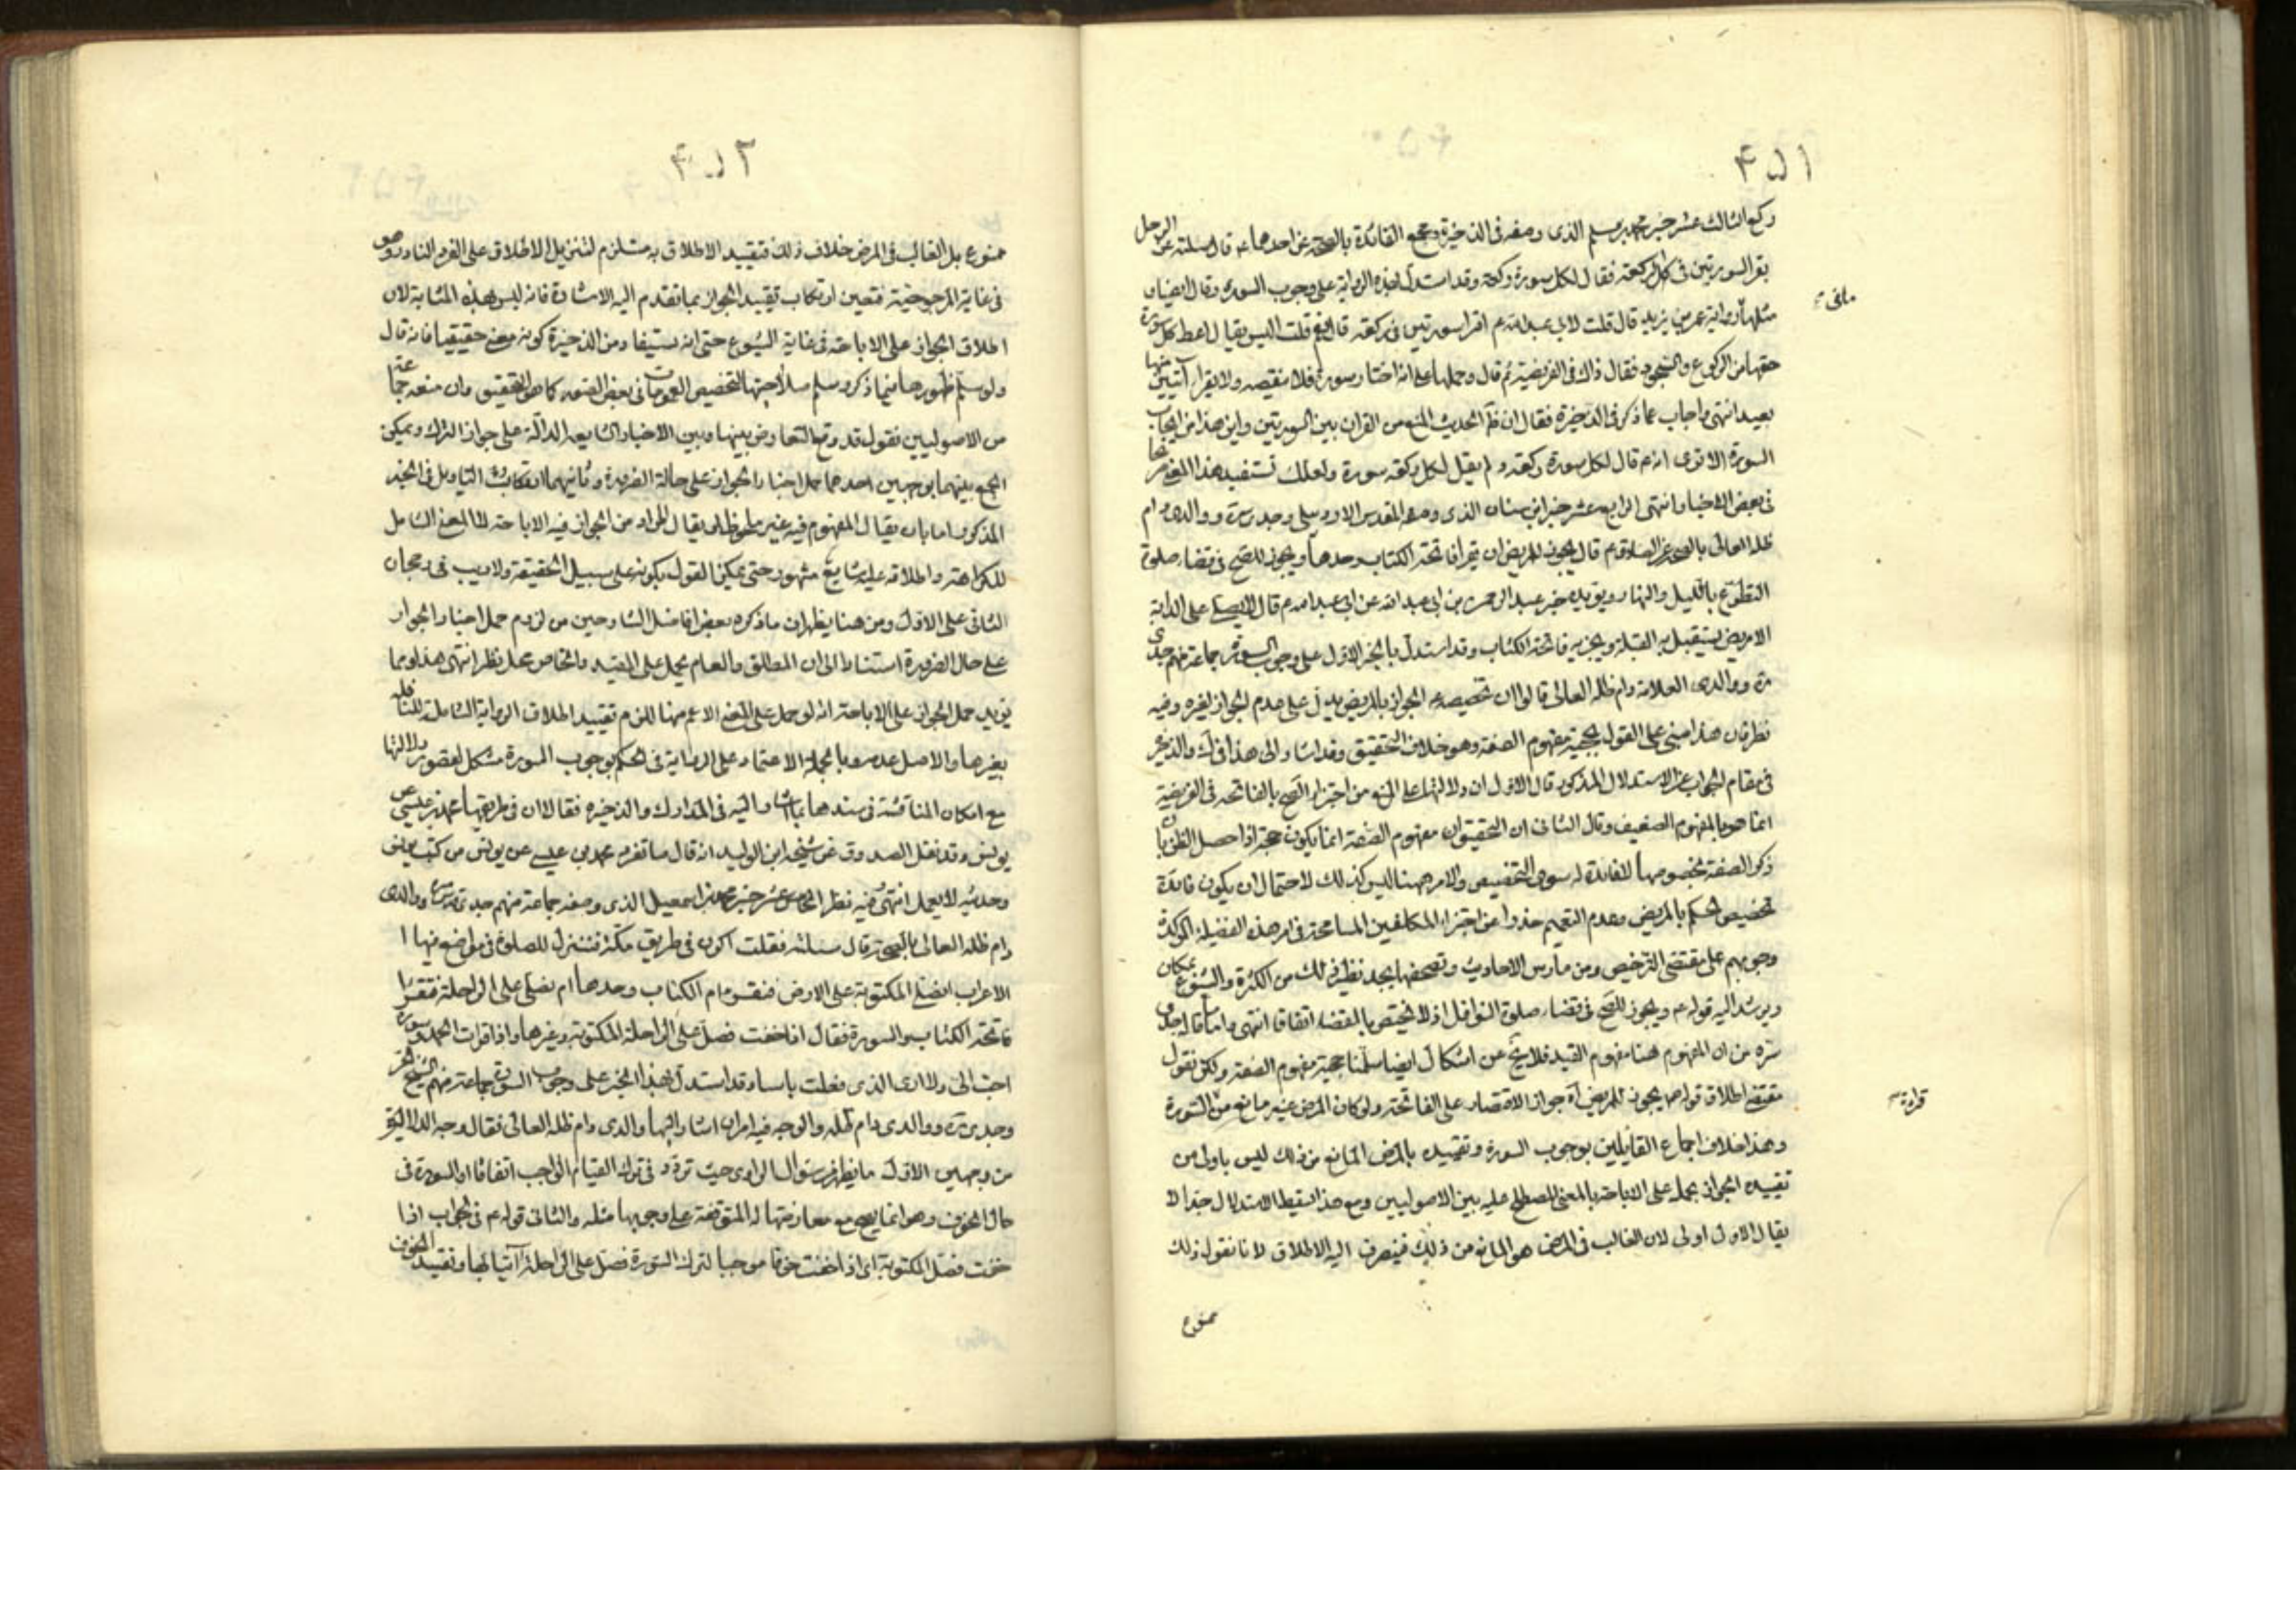 ۴۵۱
ركع الثالث عشر خبر محمد بن مسلم الذى وصفه فى الذخيرة ومجمع الفائدة بالصحة عن احدهما ع قال سئلته عن الرجل
يقرا السورتين فى كل ركعة فقال لكل سورة ركعة وقد استدل بهذه الرواية على وجوب السورة وقال ايضا ان
مثلها رواية عمر بن يزيد قال قلت لابى عبد الله ع اقرا سورتين فى ركعة قال نعم قلت اليس يقال اعط كل سورة
حقها من الركوع والسجود فقال ذاك فى الفريضة ثم قال وحملها على انه اختار سورة فلا ينقصه ولا يقرا آيتين منها
بعيد انتهى واجاب عما ذكر فى الذخيرة فقال ان الحديث المنع من القران بين السورتين واين هذا من ايجاب
السورة الا ترى انه ع قال لكل سورة ركعة ولم يقل لكل ركعة سورة ولعلك تستفيد هذا المعنى
فى بعض الاخبار انتهى الرابع عشر خبر ابن سنان الذى وصفه المقدس الاردبيلى وجدى ره ووالدى دام
ظله العالى بالصحة عن الصادق ع قال يجوز للمريض ان يقرا فاتحة الكتاب وحدها ويجوز للصحيح فى قضاء صلوة
التطوع بالليل والنهار ويؤيده خبر عبد الرحمن بن ابى عبد الله عن ابى عبد الله ع قال لا يصلى على الدابة
الا مريض يستقبل به القبلة ويجزيه فاتحة الكتاب وقد استدل بالخبر الاول على وجوب السورة جماعة منهم جدى
ره ووالدى العلامة دام ظله العالى قالوا ان تخصيصه الجواز بالمريض يدل على عدم الجواز لغيره وفيه
نظر فان هذا مبنى على القول بحجية مفهوم الصفة وهو خلاف التحقيق وقد اشار الى هذا فى ك والذخيرة
فى مقام الجواب عن الاستدلال المذكور قال الاول ان دلالتها على المنع من اجتزاء الصحيح بالفاتحة فى الفريضة
انما هو بالمفهوم الضعيف وقال الثانى ان التحقيق ان مفهوم الصفة انما يكون حجة اذا حصل الظن بان
ذكر الصفة بخصوصها لا فائدة له سوى التخصيص والامر ههنا ليس كذلك لاحتمال ان يكون فائدة
تخصيص الحكم بالمريض وعدم التعميم حذرا من اجتراء المكلفين المسامحة فى امر هذه الفضيلة المؤكدة
وجريهم على مقتضى الترخيص ومن مارس الاحاديث وتصفحها يجد نظير ذلك من الكثرة والشيوع بمكان
ويرشد اليه قوله ع ويجوز للصحيح فى قضاء صلوة النوافل اذ لا يختص بالقضاء اتفاقا انتهى واما ما قاله جدى
سره من ان المفهوم هنا مفهوم القيد فلا يخ عن اشكال ايضا سلمنا حجية مفهوم الصفة ولكن نقول
مقتضى اطلاق قوله ع يجوز للمريض آه جواز الاقتصار على الفاتحة ولو كان المرض غير مانع من السورة
وهذا خلاف اجماع القائلين بوجوب السورة وتقييده بالمرض المانع من ذلك ليس باولى من
تقييده الجواز بحمله على الاباحة بالمعنى المصطلح عليه بين الاصوليين ومع هذا يسقط الاستدلال جدا لا
يقال الاول اولى لان الغالب فى المرض هو المانع من ذلك فينصرف اليه الاطلاق لانا نقول ذلك
ممنوع
ما فى
قراءة
۴۵۲
ممنوع بل الغالب فى المرض خلاف ذلك فتقييد الاطلاق به مستلزم لتنزيل الاطلاق على الفرد النادر وهو
فى غاية المرجوحية فتعين ارتكاب تقييد الجواز بما تقدم اليه الاشارة فانه ليس بهذه المثابة لان
اطلاق الجواز على الاباحة فى غاية الشيوع حتى انه يستفاد من الذخيرة كونه معنى حقيقيا فانه قال
ولو سلم ظهورها فيما ذكره سلم صلاحيتها لتخصيص العمومات فى بعض الصور كما هو التحقيق وان منعه جماعة
من الاصوليين فنقول قد وقع التعارض بينها وبين الاخبار السابعة الدالة على جواز الترك ويمكن
الجمع بينهما بوجهين احدهما حمل اخبار الجواز على حالة الضرورة وثانيهما ارتكاب التاويل فى الخبر
المذكور اما بان يقال المفهوم فيه غير ملحوظ او يقال المراد من الجواز فيه الاباحة لا المعنى الشامل
للكراهة واطلاقه عليه شايع مشهور حتى يمكن القول بكونه على سبيل الحقيقة ولا ريب فى رجحان
الثانى على الاول ومن هنا يظهر ان ما ذكره بعض افاضل الشارحين من لزوم حمل اخبار الجواز
على حال الضرورة استنادا الى ان المطلق والعام يحمل على المقيد والخاص محل نظر انتهى هذا ومما
يؤيد حمل الجواز على الاباحة انه لو حمل على المعنى الاعم منها للزم تقييد اطلاق الرواية الشاملة للنافلة
بغيرها والاصل عدمه وبالجملة الاعتماد على الرواية فى الحكم بوجوب السورة مشكل لقصور دلالتها
مع امكان المناقشة فى سندها بما اشار اليه فى المدارك والذخيرة فقالا ان فى طريقها محمد بن عيسى عن
يونس وقد نقل الصدوق عن شيخه ابن الوليد انه قال ما تفرد محمد بن عيسى عن يونس من كتب يونس
وحديثه لا يعمل انتهى وفيه نظر الخامس عشر خبر محمد بن اسمعيل الذى وصفه جماعة منهم جدى قدس سره ووالدى
دام ظله العالى بالصحة قال سئلته فقلت اكون فى طريق مكة فننزل للصلوة فى مواضع فيها ا
الاعراب انصلى المكتوبة على الارض فنقرء ام الكتاب وحدها ام نصلى على الراحلة فنقرا
فاتحة الكتاب والسورة فقال اذا خفت فصل على الراحلة المكتوبة وغيرها واذا قرات الحمد وسورة
احب الى ولا ارى الذى فعلت باسا وقد استدل بهذا الخبر على وجوب السورة جماعة منهم الشيخ الحر
وجدى ره ووالدى دام ظله والوجه فيه امران اشار اليها والدى دام ظله العالى فقال وجه الدلالة
من وجهين الاول ما يظهر من سؤال الراوى حيث تردد فى ترك القيام الواجب اتفاقا او السورة فى
حال الخوف وهو انما يصح مع معارضتها له المتوقفة على وجوبها مثله والثانى قوله ع فى الجواب اذا
خفت فصل المكتوبة اى اذا خفت خوفا موجبا لترك السورة فصل على الراحلة آتيا بها وتقييد الخوف